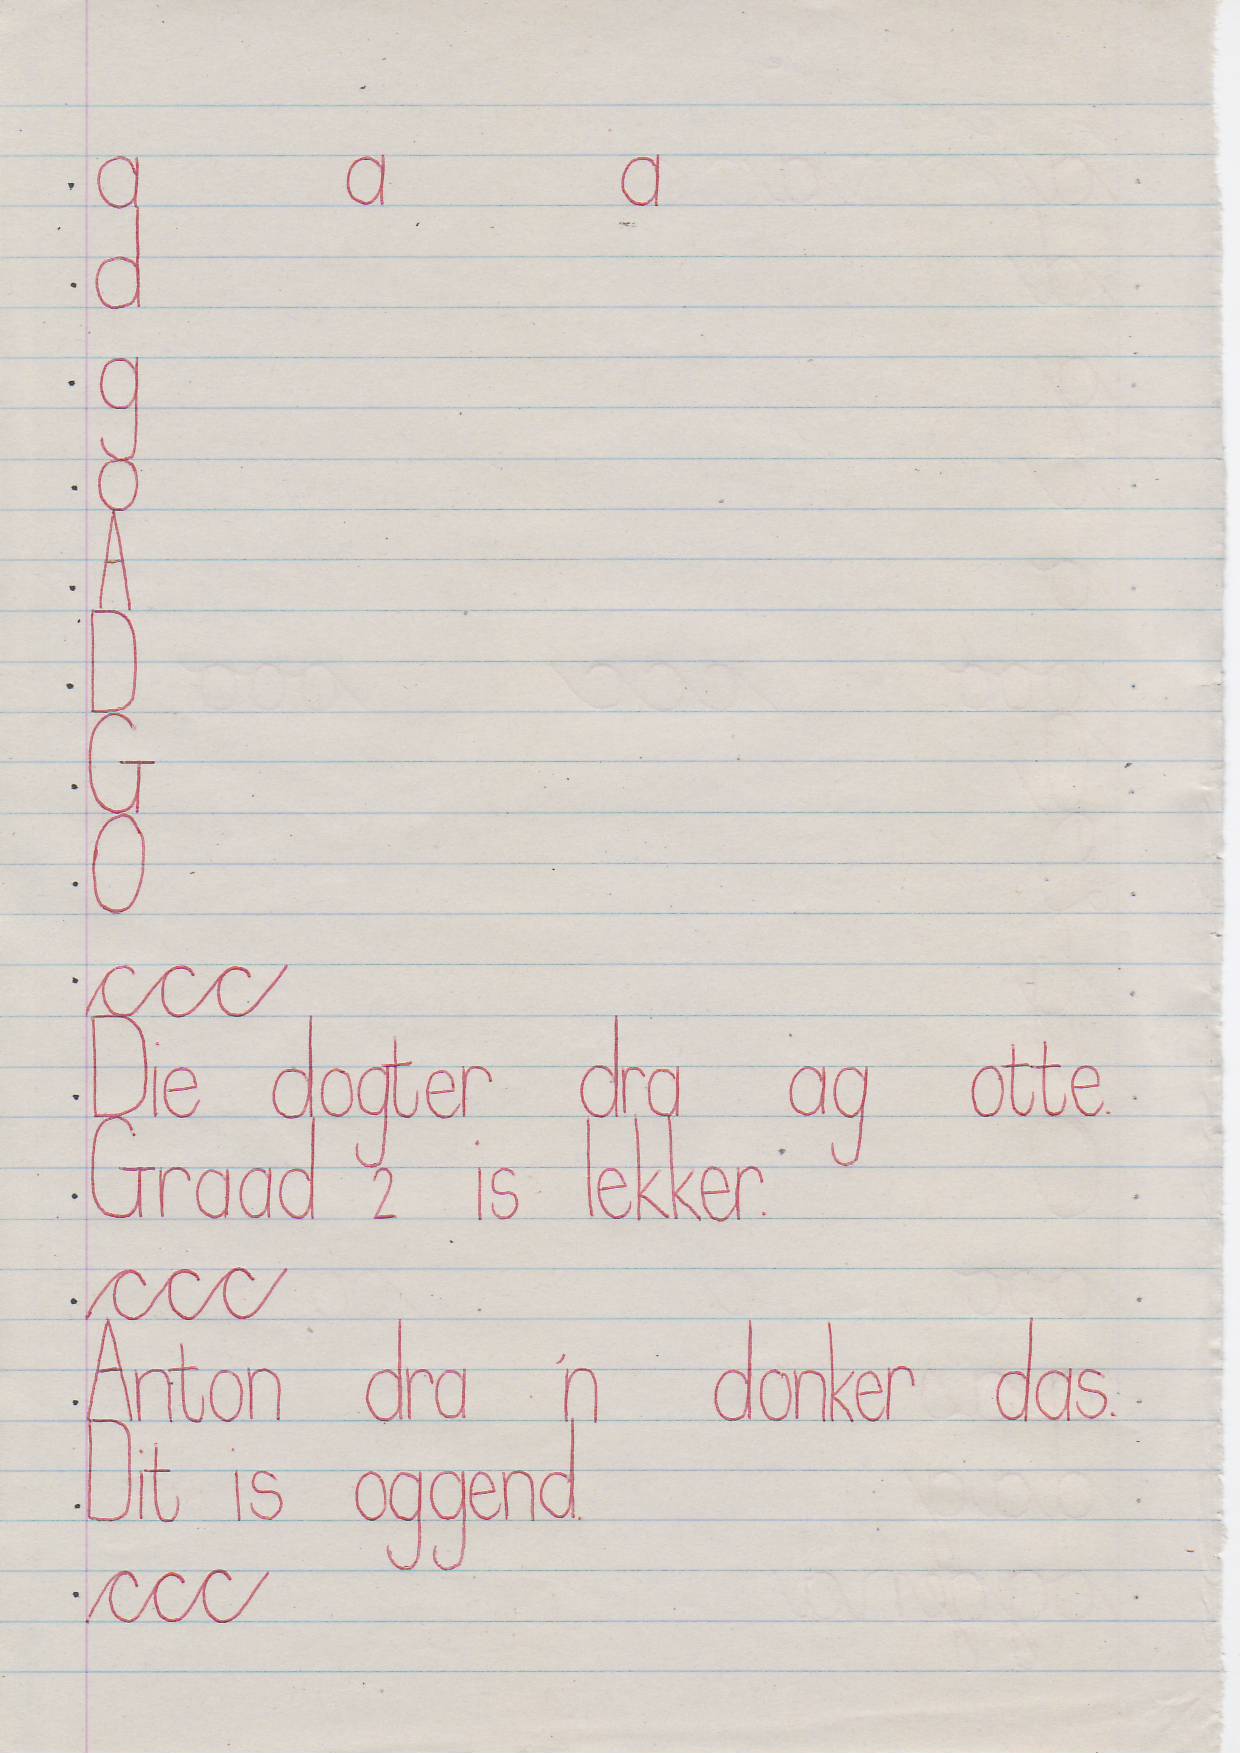 a a a
d
g
o
A
D
G
O
ccc
Die dogter dra ag otte.
Graad 2 is lekker.
ccc
Anton dra 'n donker das.
Dit is oggend.
ccc